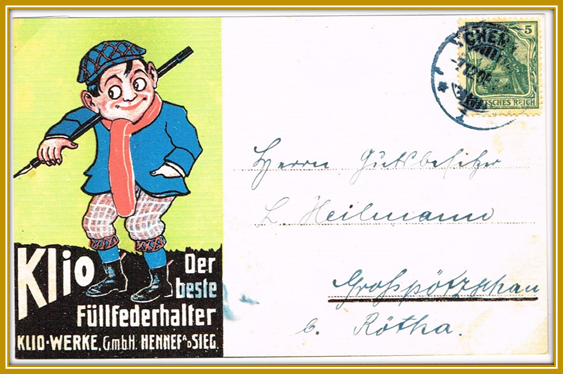 Klio Der
beste
Füllfederhalter
KLIO-WERKE, G.m.b.H. HENNEF A/D SIEG.
5
DEUTSCHES REICH
Herrn Gutsbesitzer
L. Heilmann
Großpötzschau
b. Rötha.